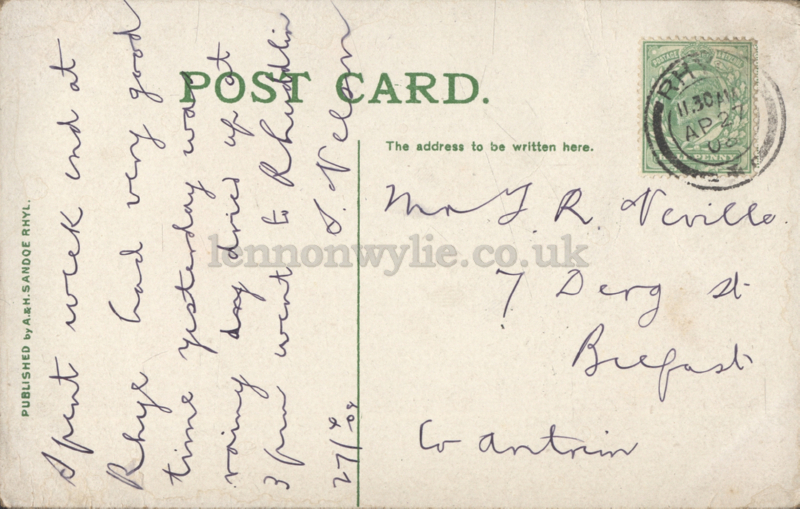 POST CARD.
The address to be written here.
PUBLISHED by A.&H. SANDOE RHYL.
Spent week end at
Rhyl had very good
time yesterday was
rainy day dried up at
3 pm went to Rhuddlin
27/4/08
Mr T. R. Neville.
7 Derg St
Belfast
Co Antrim
RH
11.30 AM
AP 27
08
POSTAGE
PENNY
lennonwylie.co.uk